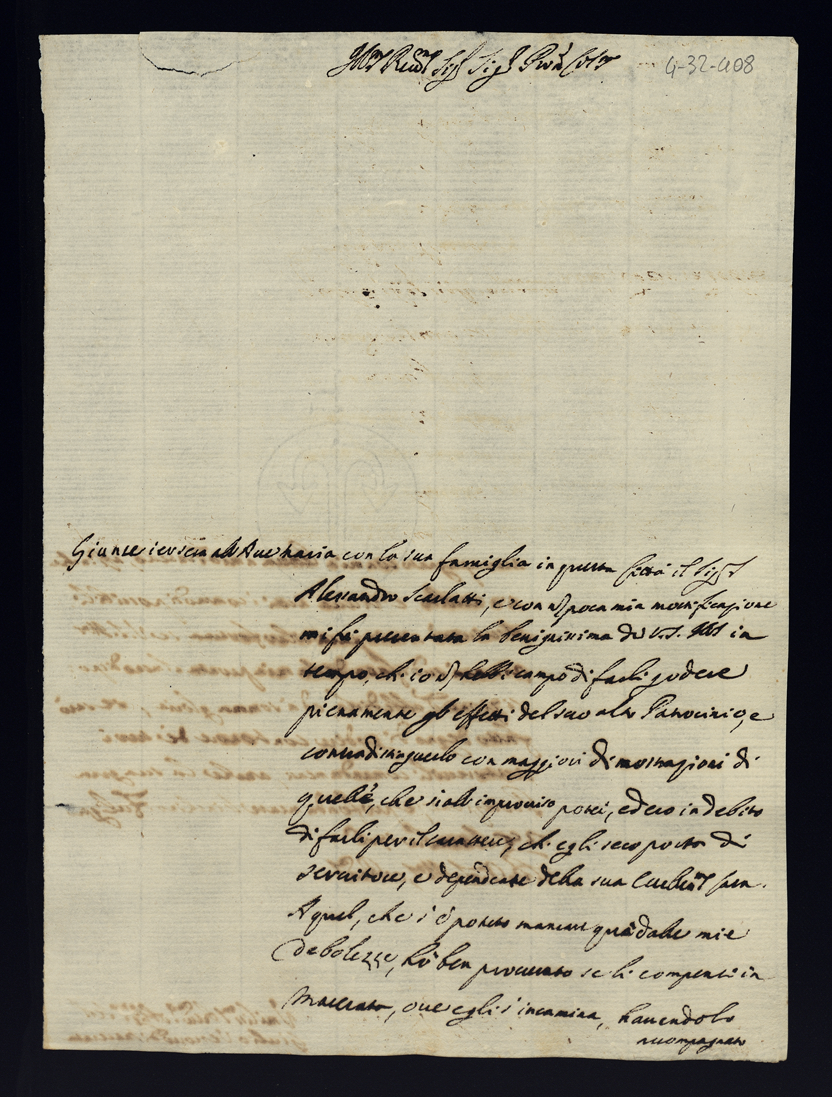 Ill.mo Rev.mo Sig.r Sig.r P.ron Col.mo
4-32-408
Giunse iersera all'Ave Maria con la sua famiglia in questa Città il Sig.r
Alessandro Scarlatti, e con ñ poca mia mortificazione
mi fù presentata la benignissima di V.S. Ill.ma in
tempo, che io ñ hebbi campo di farli godere
pienamente gl'effetti del suo alto Patrocinio, e
contradistinguerlo con maggiori dimostrazioni di
quelle, che sì all'improviso potei, ed ero in debito
di farli per il carattere, che egli seco porta di
servitore, e dependente della sua Eccellen.ma
A quel, che s'è potuto mancare quà dalle mie
debolezze, hò ben procurato se li compensi in
Macerata, ove egli s'incamina, havendolo
accompagnato